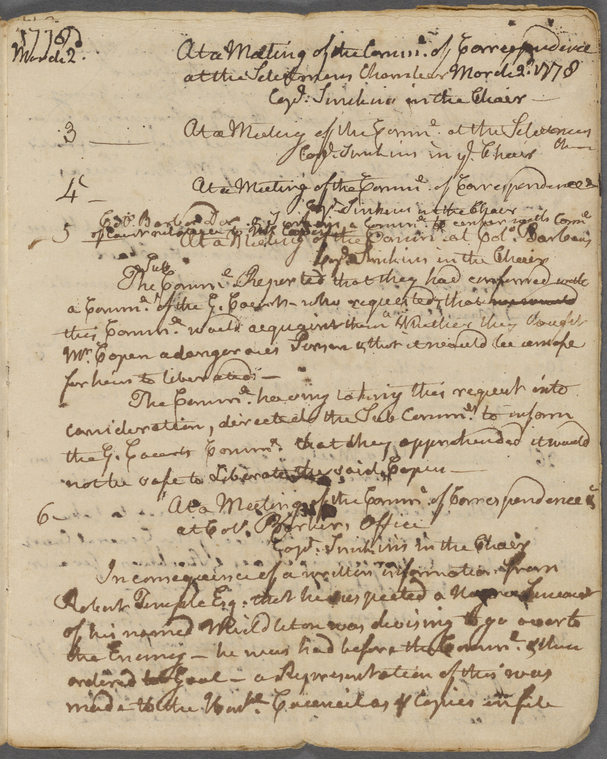 1778
March 2d.
At a Meeting of the Comme. of Correspondence
at the Selectmens Chamber March 2d. 1778
Capt. Jenkins in the Chair
3 At a Meeting of the Comme. at the Selectmens
Capt. Jenkins in ye. Chair
4 At a Meeting of the Comme. of Correspondence &
Capt. Jenkins in the Chair
a Comme. to confer with Comme.
5 At a Meeting of the Comme. at Colo. Barbers
Capt. Jenkins in the Chair
The Sub Comme. Reported that they had conferred with
a Comme. of the G. Court who requested that
this Comme. would acquaint them whether they thought
Mr. Copen a dangerous Person & that it would be unsafe
for him to liberated
The Comme. having taking this request into
consideration, directed the Sub Comme. to inform
the G. Court Comme. that they apprehended it would
not be safe to Liberate the said Copen
6 At a Meeting of the Comme. of Correspondence &
at Colo. Barbers Office
Capt. Jenkins in the Chair
In consequence of a written information from
Robert Temple Esq. that he suspected a Negro Servant
of his named Middleton was devising to go over to
the Enemy — he was had before the Comme. & then
ordered to Goal — a Representation of this was
made to the Honle. Council as Copies in file